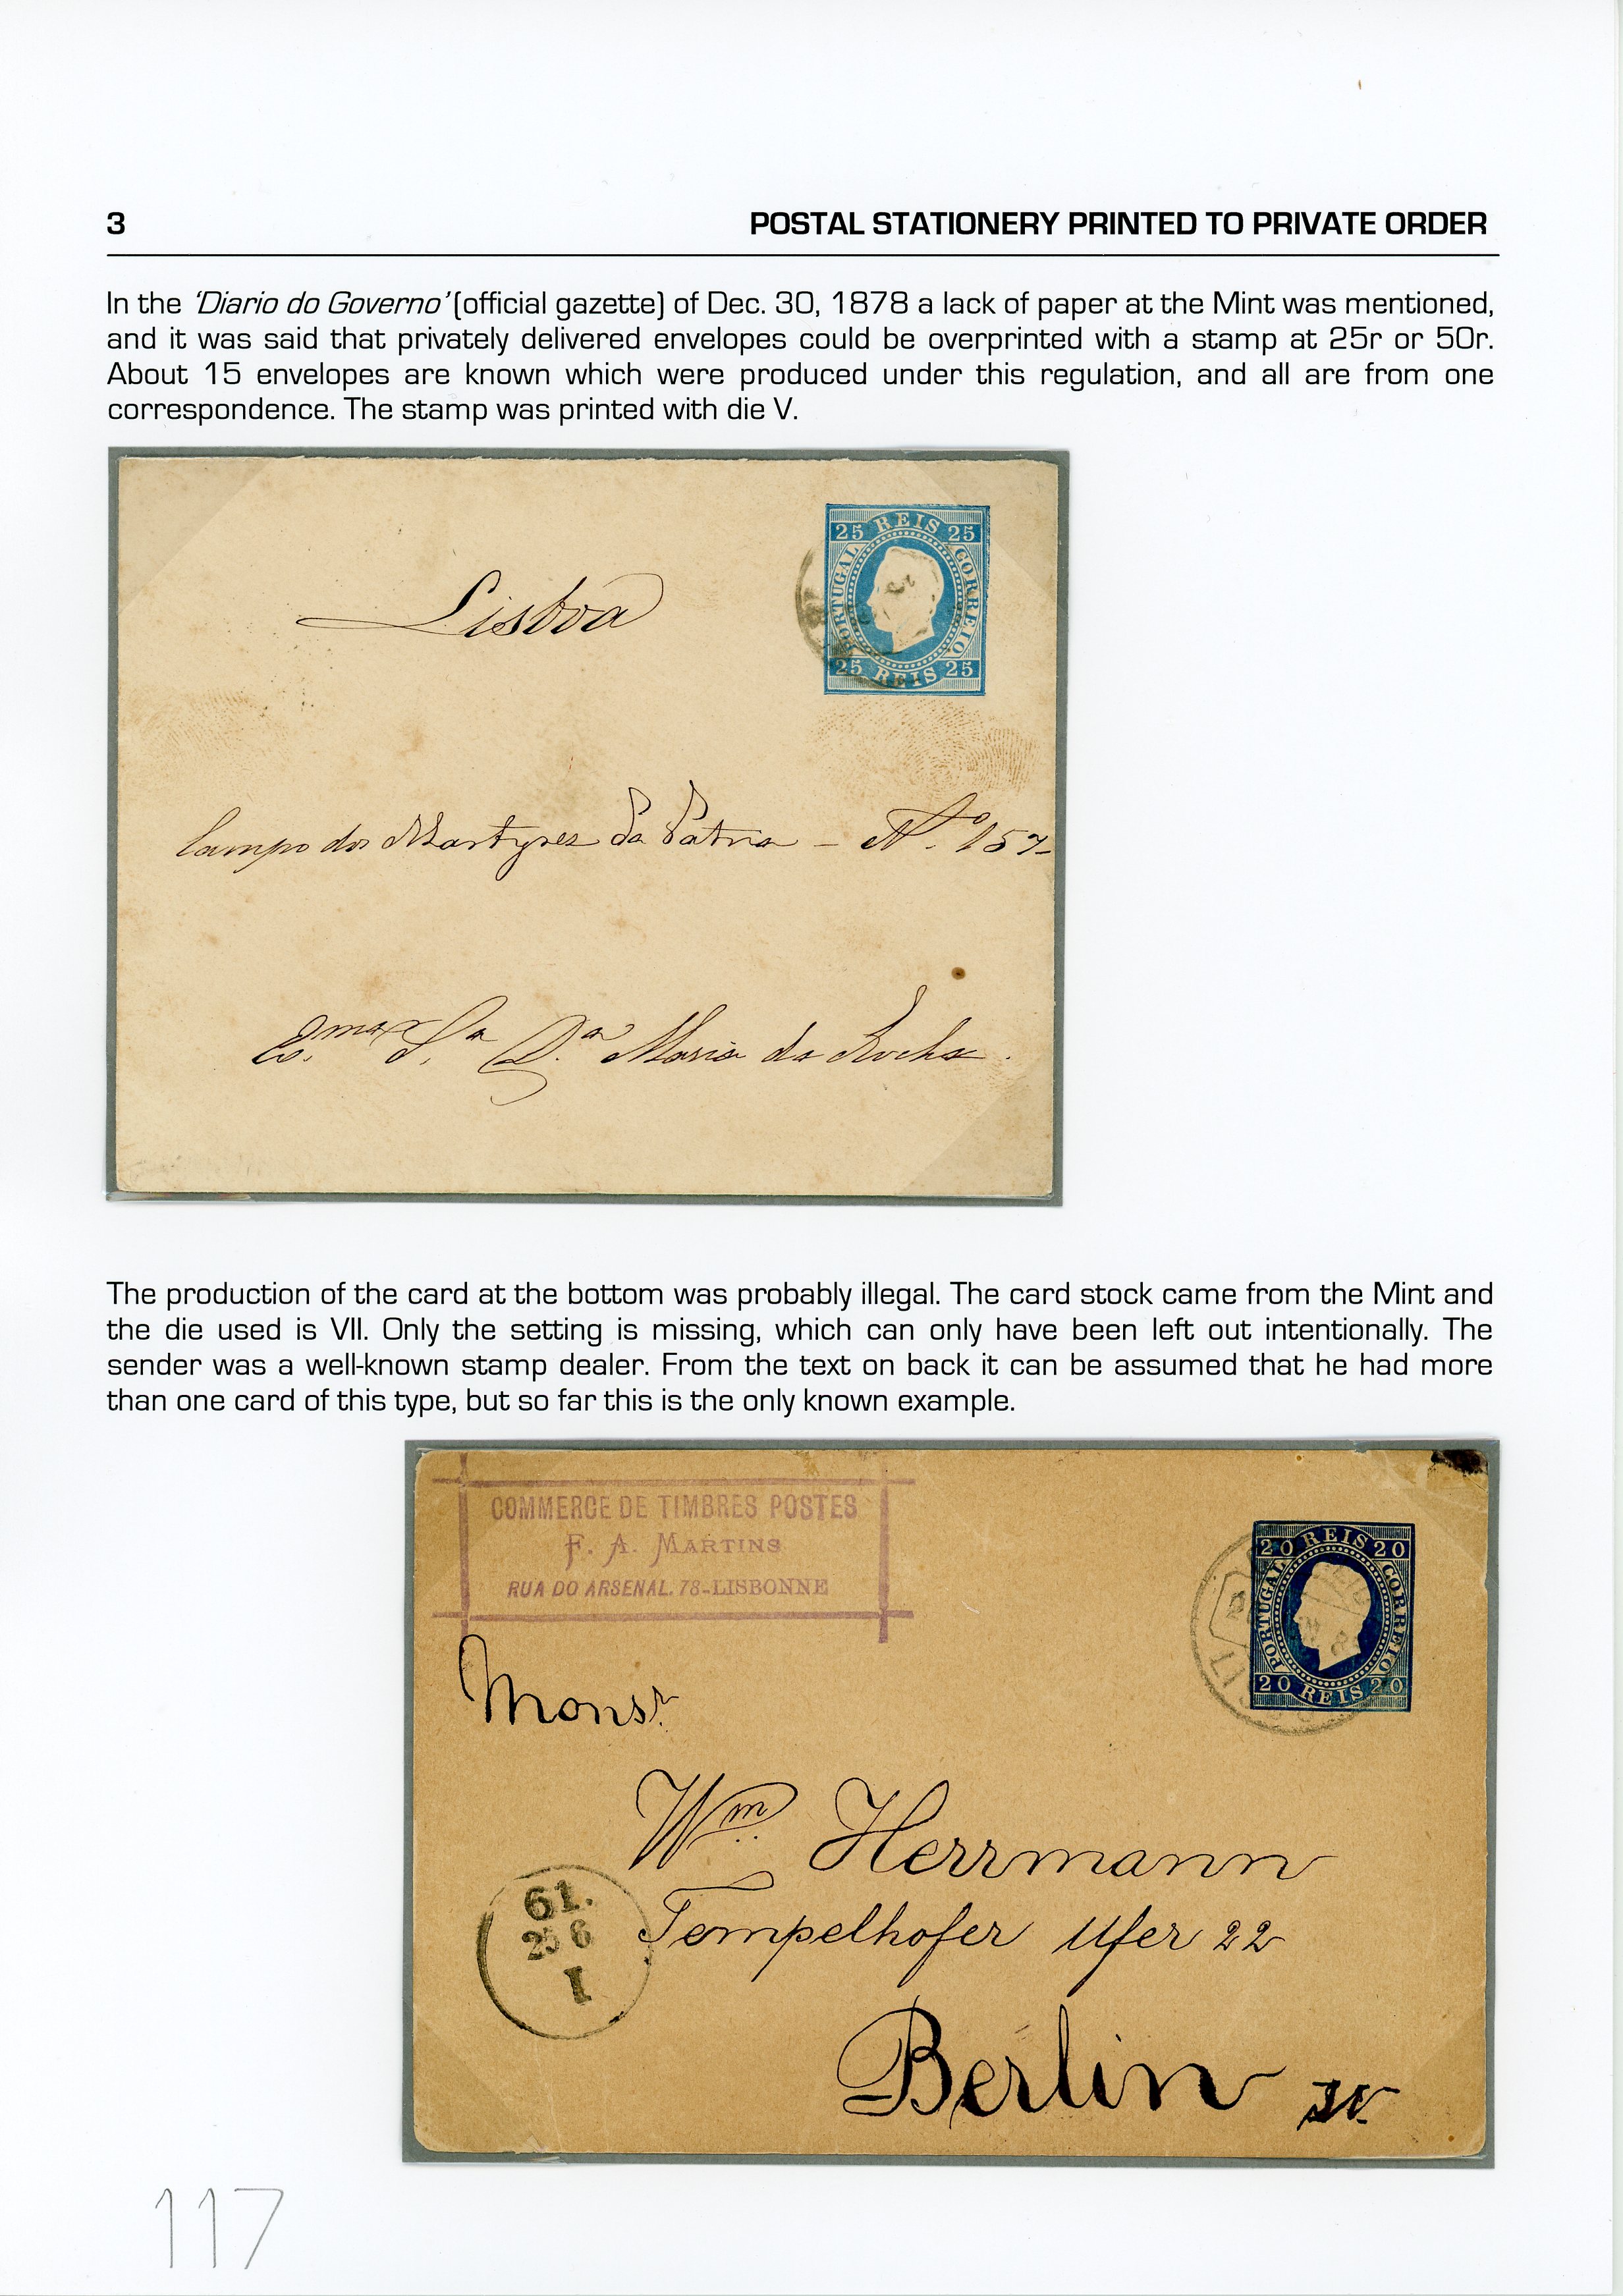 3 POSTAL STATIONERY PRINTED TO PRIVATE ORDER
In the ‘Diario do Governo’ (official gazette) of Dec. 30, 1878 a lack of paper at the Mint was mentioned,
and it was said that privately delivered envelopes could be overprinted with a stamp at 25r or 50r.
About 15 envelopes are known which were produced under this regulation, and all are from one
correspondence. The stamp was printed with die V.
25 REIS 25
PORTUGAL CORREIO
25 REIS 25
Lisboa
Campo dos Martyres da Patria - Nº 157
Ex.ma S.ra D.na Maria da Rocha.
The production of the card at the bottom was probably illegal. The card stock came from the Mint and
the die used is VII. Only the setting is missing, which can only have been left out intentionally. The
sender was a well-known stamp dealer. From the text on back it can be assumed that he had more
than one card of this type, but so far this is the only known example.
COMMERCE DE TIMBRES POSTES
F. A. MARTINS
RUA DO ARSENAL, 78-LISBONNE
20 REIS 20
PORTUGAL CORREIO
20 REIS 20
Monsr
Wm Herrmann
Tempelhofer Ufer 22
Berlin
61.
25 6
I
117